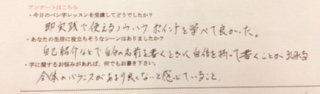 アンケートはこちら
・今日のペン字レッスンを受講してどうでしたか？
即実践で使えるノウハウ ポイントを学べて良かった。
・あなたの生活に役立ちそうなシーンはありましたか？
自己紹介などで自分の名前を書くときに自信を持って書くことが出来
・字に関するお悩みがあれば、何でもお書き下さい。
全体のバランスがあまり良くないと感じていること。